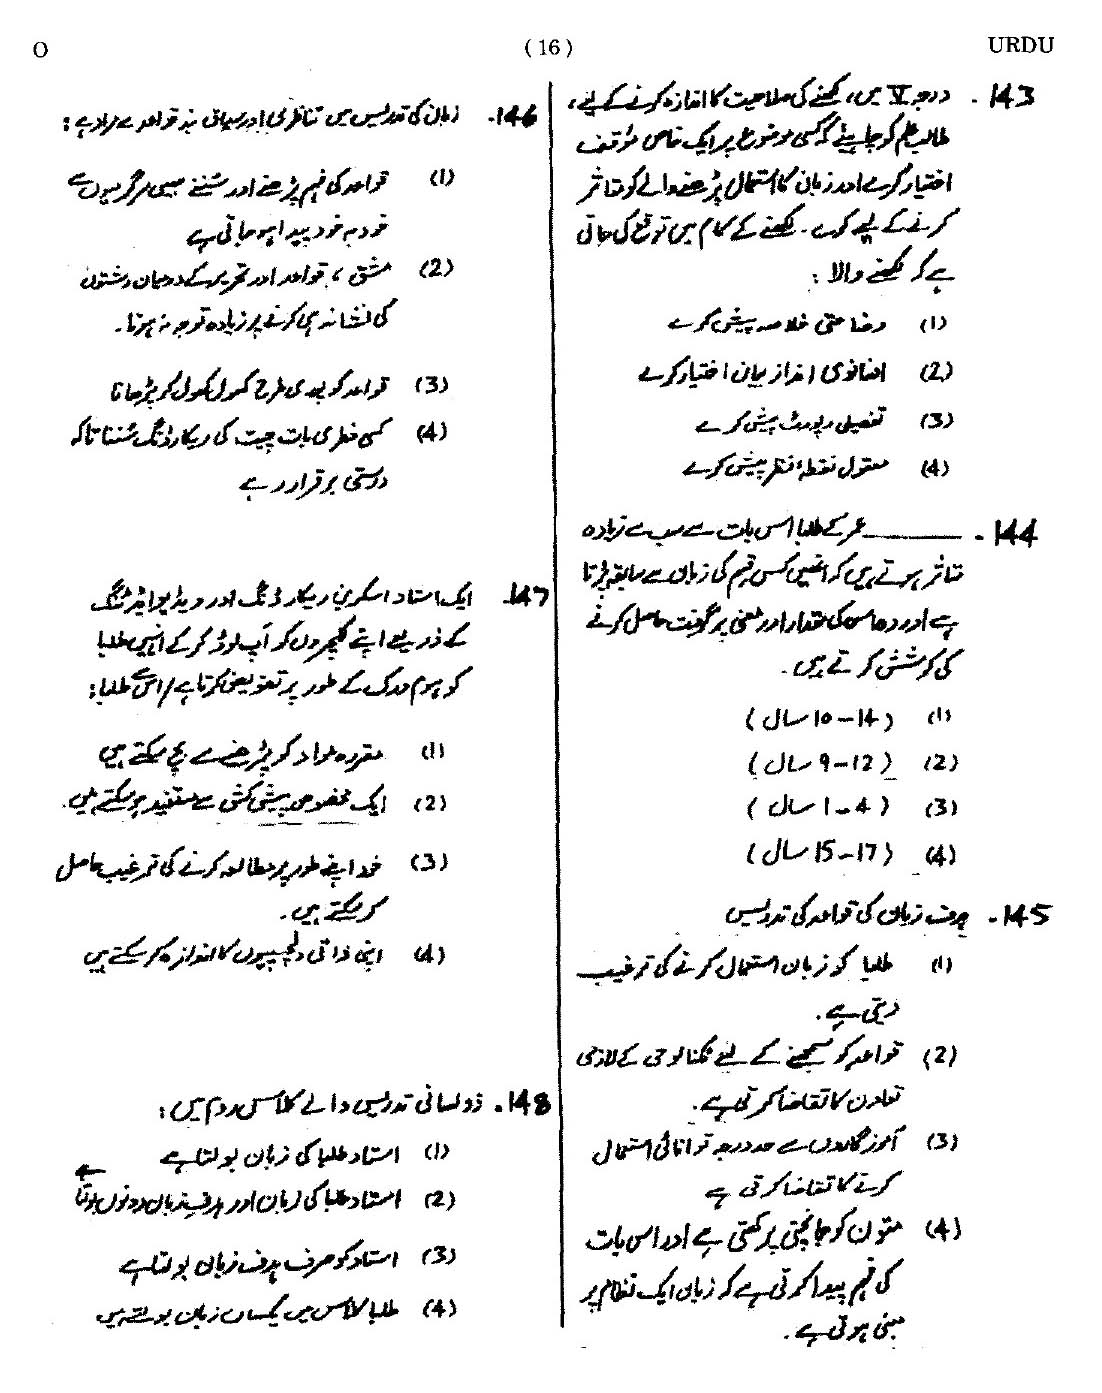 O
( 16 )
URDU
143. درجہ V میں، لکھنے کی صلاحیت کا اندازہ کرنے کے لیے،
طالب علم کو چاہیئے کہ کسی موضوع پر ایک خاص مؤقف
اختیار کرے اور زبان کا استعمال پڑھنے والے کو متاثر
کرنے کے لیے کرے۔ لکھنے کے کام میں توقع کی جاتی
ہے کہ لکھنے والا :
(1) وضاحتی خلاصہ پیش کرے
(2) افسانوی انداز بیان اختیار کرے
(3) تفصیلی رپورٹ پیش کرے
(4) معقول نقطۂ نظر پیش کرے
144. ______ عمر کے طلبا اس بات سے سب سے زیادہ
متاثر ہوتے ہیں کہ انھیں کس قسم کی زبان سے سابقہ پڑتا
ہے اور وہ اس کی مقدار اور معنی پر گرفت حاصل کرنے
کی کوشش کرتے ہیں۔
(1) (10–14 سال)
(2) (9–12 سال)
(3) (1–4 سال)
(4) (15–17 سال)
145. ہدف زبان کی قواعد کی تدریس
(1) طلبا کو زبان استعمال کرنے کی ترغیب
دیتی ہے۔
(2) قواعد کو سمجھنے کے لیے ٹکنالوجی کے لازمی
تعاون کا تقاضا کرتی ہے۔
(3) آموزگاروں سے حد درجہ توانائی استعمال
کرنے کا تقاضا کرتی ہے
(4) متون کو جانچتی پرکھتی ہے اور اس بات
کی فہم پیدا کرتی ہے کہ زبان ایک نظام پر
مبنی ہوتی ہے۔
146. زبان کی تدریس میں تناظری اور سیاقی قواعد سے مراد ہے :
(1) قواعد کی فہم پڑھنے اور سننے جیسی سرگرمیوں سے
خود بہ خود پیدا ہو جاتی ہے
(2) مشق، قواعد اور تحریر کے درمیان رشتوں
کی نشاندہی کرنے پر زیادہ توجہ نہ ہونا۔
(3) قواعد کو پوری طرح کھول کھول کر پڑھانا
(4) کسی فطری بات چیت کی ریکارڈنگ سُننا تاکہ
درستی برقرار رہے
147. ایک استاد اسکرین ریکارڈنگ اور ویڈیو ایڈیٹنگ
کے ذریعے اپنے لکچروں کو اَپ لوڈ کر کے انہیں طلبا
کو ہوم ورک کے طور پر تفویض کرتا ہے / اس سے طلبا :
(1) مقررہ مواد کو پڑھنے سے بچ سکتے ہیں
(2) ایک مخصوص پیش کش سے مستفید ہو سکتے ہیں۔
(3) خود اپنے طور پر مطالعہ کرنے کی ترغیب حاصل
کر سکتے ہیں۔
(4) اپنی ذاتی دلچسپیوں کا اندازہ کر سکتے ہیں
148. ذولسانی تدریس والے کلاس روم میں :
(1) استاد طلبا کی زبان بولتا ہے
(2) استاد طلبا کی زبان اور ہدف زبان دونوں بولتا ہے
(3) استاد کو صرف ہدف زبان بولتا ہے
(4) طلبا کلاس میں یکساں زبان بولتے ہیں